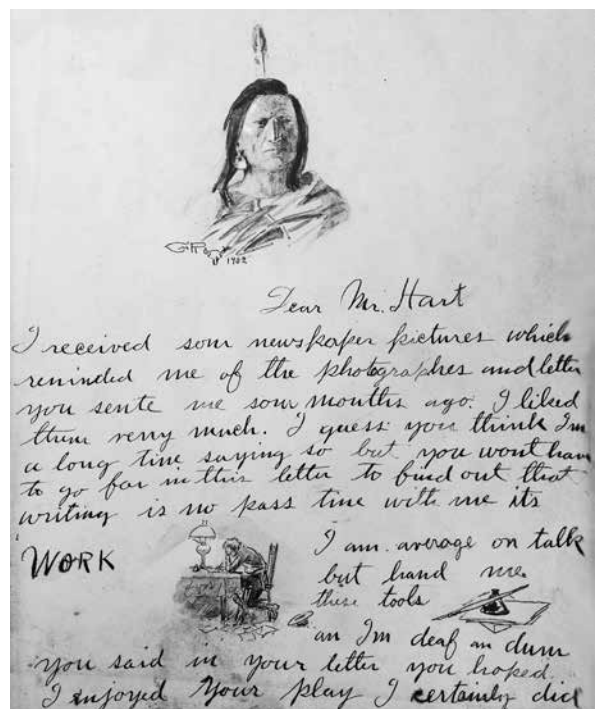 1902
Dear Mr. Hart
I received som newspaper pictures which
reminded me of the photographes and letter
you sente me som months ago. I liked
them verry much. I guess you think Im
a long time saying so but you wont have
to go far in this letter to find out that
writing is no pass time with me its
WORK
I am average on talk
but hand me
these tools
an Im deaf an dum
you said in your letter you hoped
I enjoyed your play I certainly did